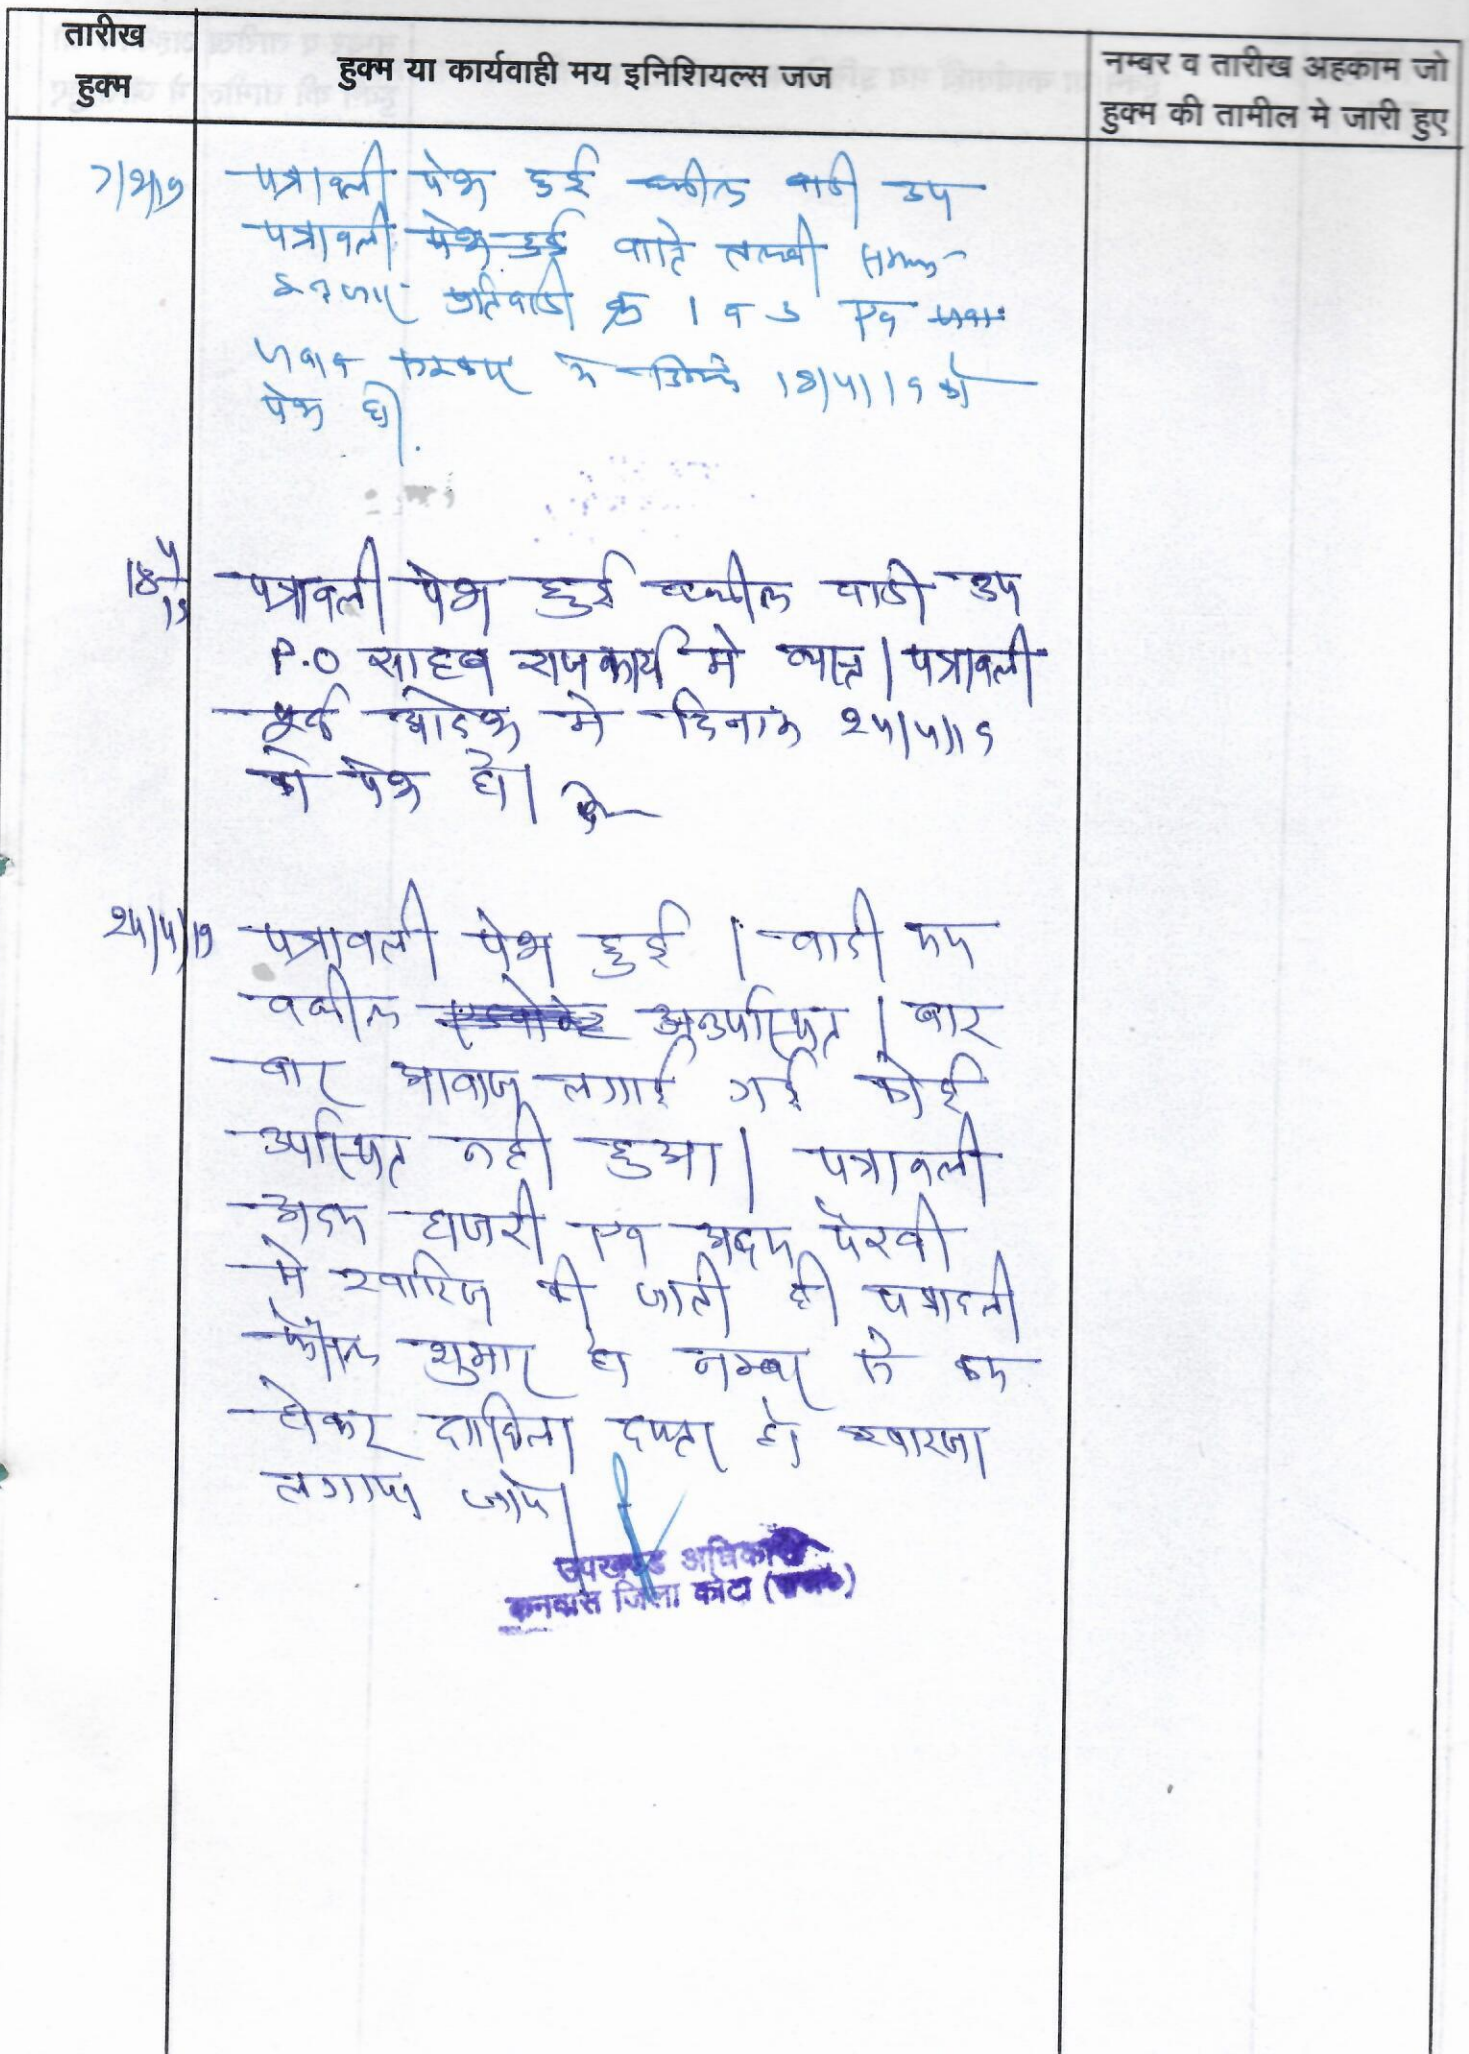 तारीख
हुक्म
हुक्म या कार्यवाही मय इनिशियल्स जज
नम्बर व तारीख अहकाम जो
हुक्म की तामील मे जारी हुए
पत्रावली पेश हुई वकील वादी उप
पत्रावली पेश हुई वास्ते तलबी
प्रतिवादी क्र 1 व 3 एवं
जवाब 18/4/19 को
पेश हो।
18/4/19 पत्रावली पेश हुई वकील वादी उप
P.O साहब राजकार्य मे व्यस्त। पत्रावली
पूर्व आदेश मे दिनांक 24/4/19
को पेश हो।
24/4/19 पत्रावली पेश हुई। वादी एवं
वकील अनुपस्थित। बार
बार आवाज लगाई गई कोई
उपस्थित नही हुआ। पत्रावली
अदम हाजरी एवं अदम पैरवी
मे खारिज की जाती है पत्रावली
फैसल शुमार हो नम्बर से कम
होकर दाखिला दफ्तर हो खारजा
लगाया जावे।
उपखण्ड अधिकारी
कनवास जिला कोटा